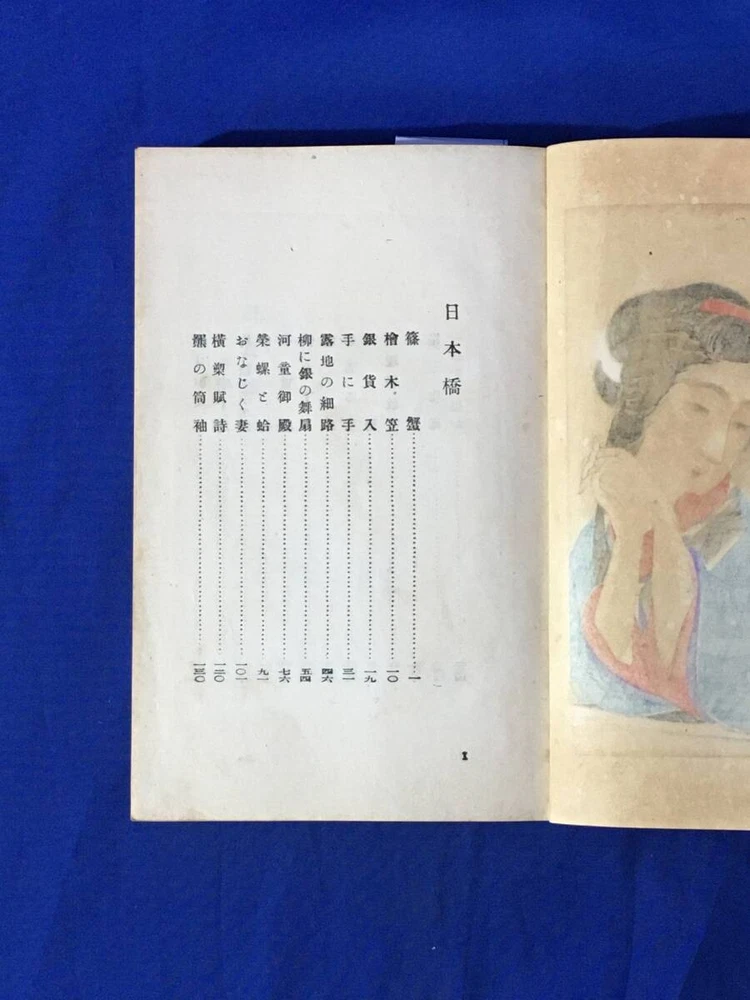 日本橋
篠蟹……一
檜木笠……一〇
銀貨入……一九
手に手……三一
露地の細路……四六
柳に銀の舞扇……五四
河童御殿……七六
榮螺と蛤……九一
おなじく妻……一〇一
橫槊賦詩……一二〇
羆の筒袖……一三〇
1